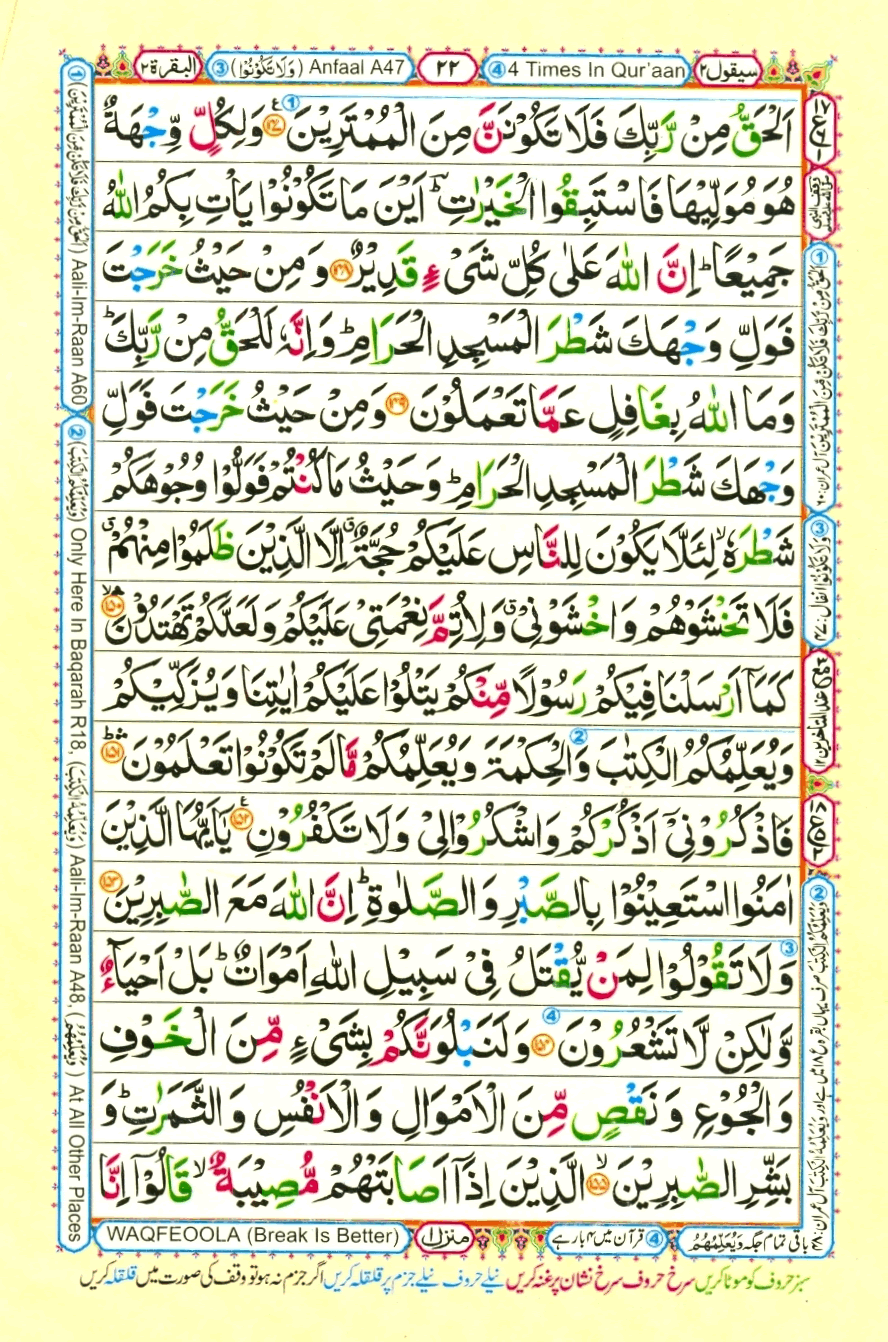 سيقول ٢
④ 4 Times In Qur'aan
٢٢
③ (وَلَا تَكُوْنُوْا) Anfaal A47
البقرة ٢
اَلْحَقُّ مِنْ رَّبِّكَ فَلَا تَكُوْنَنَّ مِنَ الْمُمْتَرِيْنَ ①﴿١٤٧﴾ وَلِكُلٍّ وِّجْهَةٌ
هُوَ مُوَلِّيْهَا فَاسْتَبِقُوا الْخَيْرٰتِ ؕ اَيْنَ مَا تَكُوْنُوْا يَاْتِ بِكُمُ اللّٰهُ
جَمِيْعًا ؕ اِنَّ اللّٰهَ عَلٰى كُلِّ شَىْءٍ قَدِيْرٌ ﴿١٤٨﴾ وَ مِنْ حَيْثُ خَرَجْتَ
فَوَلِّ وَجْهَكَ شَطْرَ الْمَسْجِدِ الْحَرَامِ ؕ وَاِنَّهٗ لَلْحَقُّ مِنْ رَّبِّكَ ؕ
وَمَا اللّٰهُ بِغَافِلٍ عَمَّا تَعْمَلُوْنَ ﴿١٤٩﴾ وَمِنْ حَيْثُ خَرَجْتَ فَوَلِّ
وَجْهَكَ شَطْرَ الْمَسْجِدِ الْحَرَامِ ؕ وَحَيْثُ مَا كُنْتُمْ فَوَلُّوْا وُجُوْهَكُمْ
شَطْرَهٗ ۙ لِئَلَّا يَكُوْنَ لِلنَّاسِ عَلَيْكُمْ حُجَّةٌ ۙق اِلَّا الَّذِيْنَ ظَلَمُوْا مِنْهُمْ ق
فَلَا تَخْشَوْهُمْ وَاخْشَوْنِىْ ق وَلِاُتِمَّ نِعْمَتِىْ عَلَيْكُمْ وَلَعَلَّكُمْ تَهْتَدُوْنَ ﴿١٥٠﴾
كَمَاۤ اَرْسَلْنَا فِيْكُمْ رَسُوْلًا مِّنْكُمْ يَتْلُوْا عَلَيْكُمْ اٰيٰتِنَا وَيُزَكِّيْكُمْ
وَيُعَلِّمُكُمُ الْكِتٰبَ وَالْحِكْمَةَ ② وَيُعَلِّمُكُمْ مَّا لَمْ تَكُوْنُوْا تَعْلَمُوْنَ ﴿١٥١﴾
فَاذْكُرُوْنِىْۤ اَذْكُرْكُمْ وَاشْكُرُوْا لِىْ وَلَا تَكْفُرُوْنِ ﴿١٥٢﴾ يٰۤاَيُّهَا الَّذِيْنَ
اٰمَنُوا اسْتَعِيْنُوْا بِالصَّبْرِ وَالصَّلٰوةِ ؕ اِنَّ اللّٰهَ مَعَ الصّٰبِرِيْنَ ﴿١٥٣﴾
③ وَلَا تَقُوْلُوْا لِمَنْ يُّقْتَلُ فِىْ سَبِيْلِ اللّٰهِ اَمْوَاتٌ ؕ بَلْ اَحْيَآءٌ
وَّلٰكِنْ لَّا تَشْعُرُوْنَ ④﴿١٥٤﴾ وَلَنَبْلُوَنَّكُمْ بِشَىْءٍ مِّنَ الْخَوْفِ
وَالْجُوْعِ وَ نَقْصٍ مِّنَ الْاَمْوَالِ وَالْاَنْفُسِ وَالثَّمَرٰتِ ؕ وَ
بَشِّرِ الصّٰبِرِيْنَ ﴿١٥٥﴾ۙ الَّذِيْنَ اِذَاۤ اَصَابَتْهُمْ مُّصِيْبَةٌ ۙ قَالُوْۤا اِنَّا
① (اَلْحَقُّ مِنْ رَّبِّكَ فَلَا تَكُنْ مِّنَ الْمُمْتَرِيْنَ) Aali-Im-Raan A60
② (وَيُعَلِّمُكُمُ الْكِتٰبَ) Only Here In Baqarah R18, (وَيُعَلِّمُهُ الْكِتٰبَ) Aali-Im-Raan A48, (وَيُعَلِّمُهُمُ) At All Other Places
① اَلْحَقُّ مِنْ رَّبِّكَ فَلَا تَكُنْ مِّنَ الْمُمْتَرِيْنَ آل عمران: ٦٠
③ وَلَا تَكُوْنُوْا انفال: ٤٧
② وَيُعَلِّمُكُمُ الْكِتٰبَ صرف یہاں بقرہ رکوع ۱۸ میں ہے اور وَيُعَلِّمُهُ الْكِتٰبَ آل عمران: ٤٨
باقی تمام جگہ وَيُعَلِّمُهُمُ
④ قرآن میں ۴ بار ہے
منزل ۱
WAQFEOOLA (Break Is Better)
سبز حروف کو موٹا کریں سرخ حروف سرخ نشان پر غنہ کریں نیلے حروف نیلے جزم پر قلقلہ کریں اگر جزم نہ ہو تو وقف کی صورت میں قلقلہ کریں